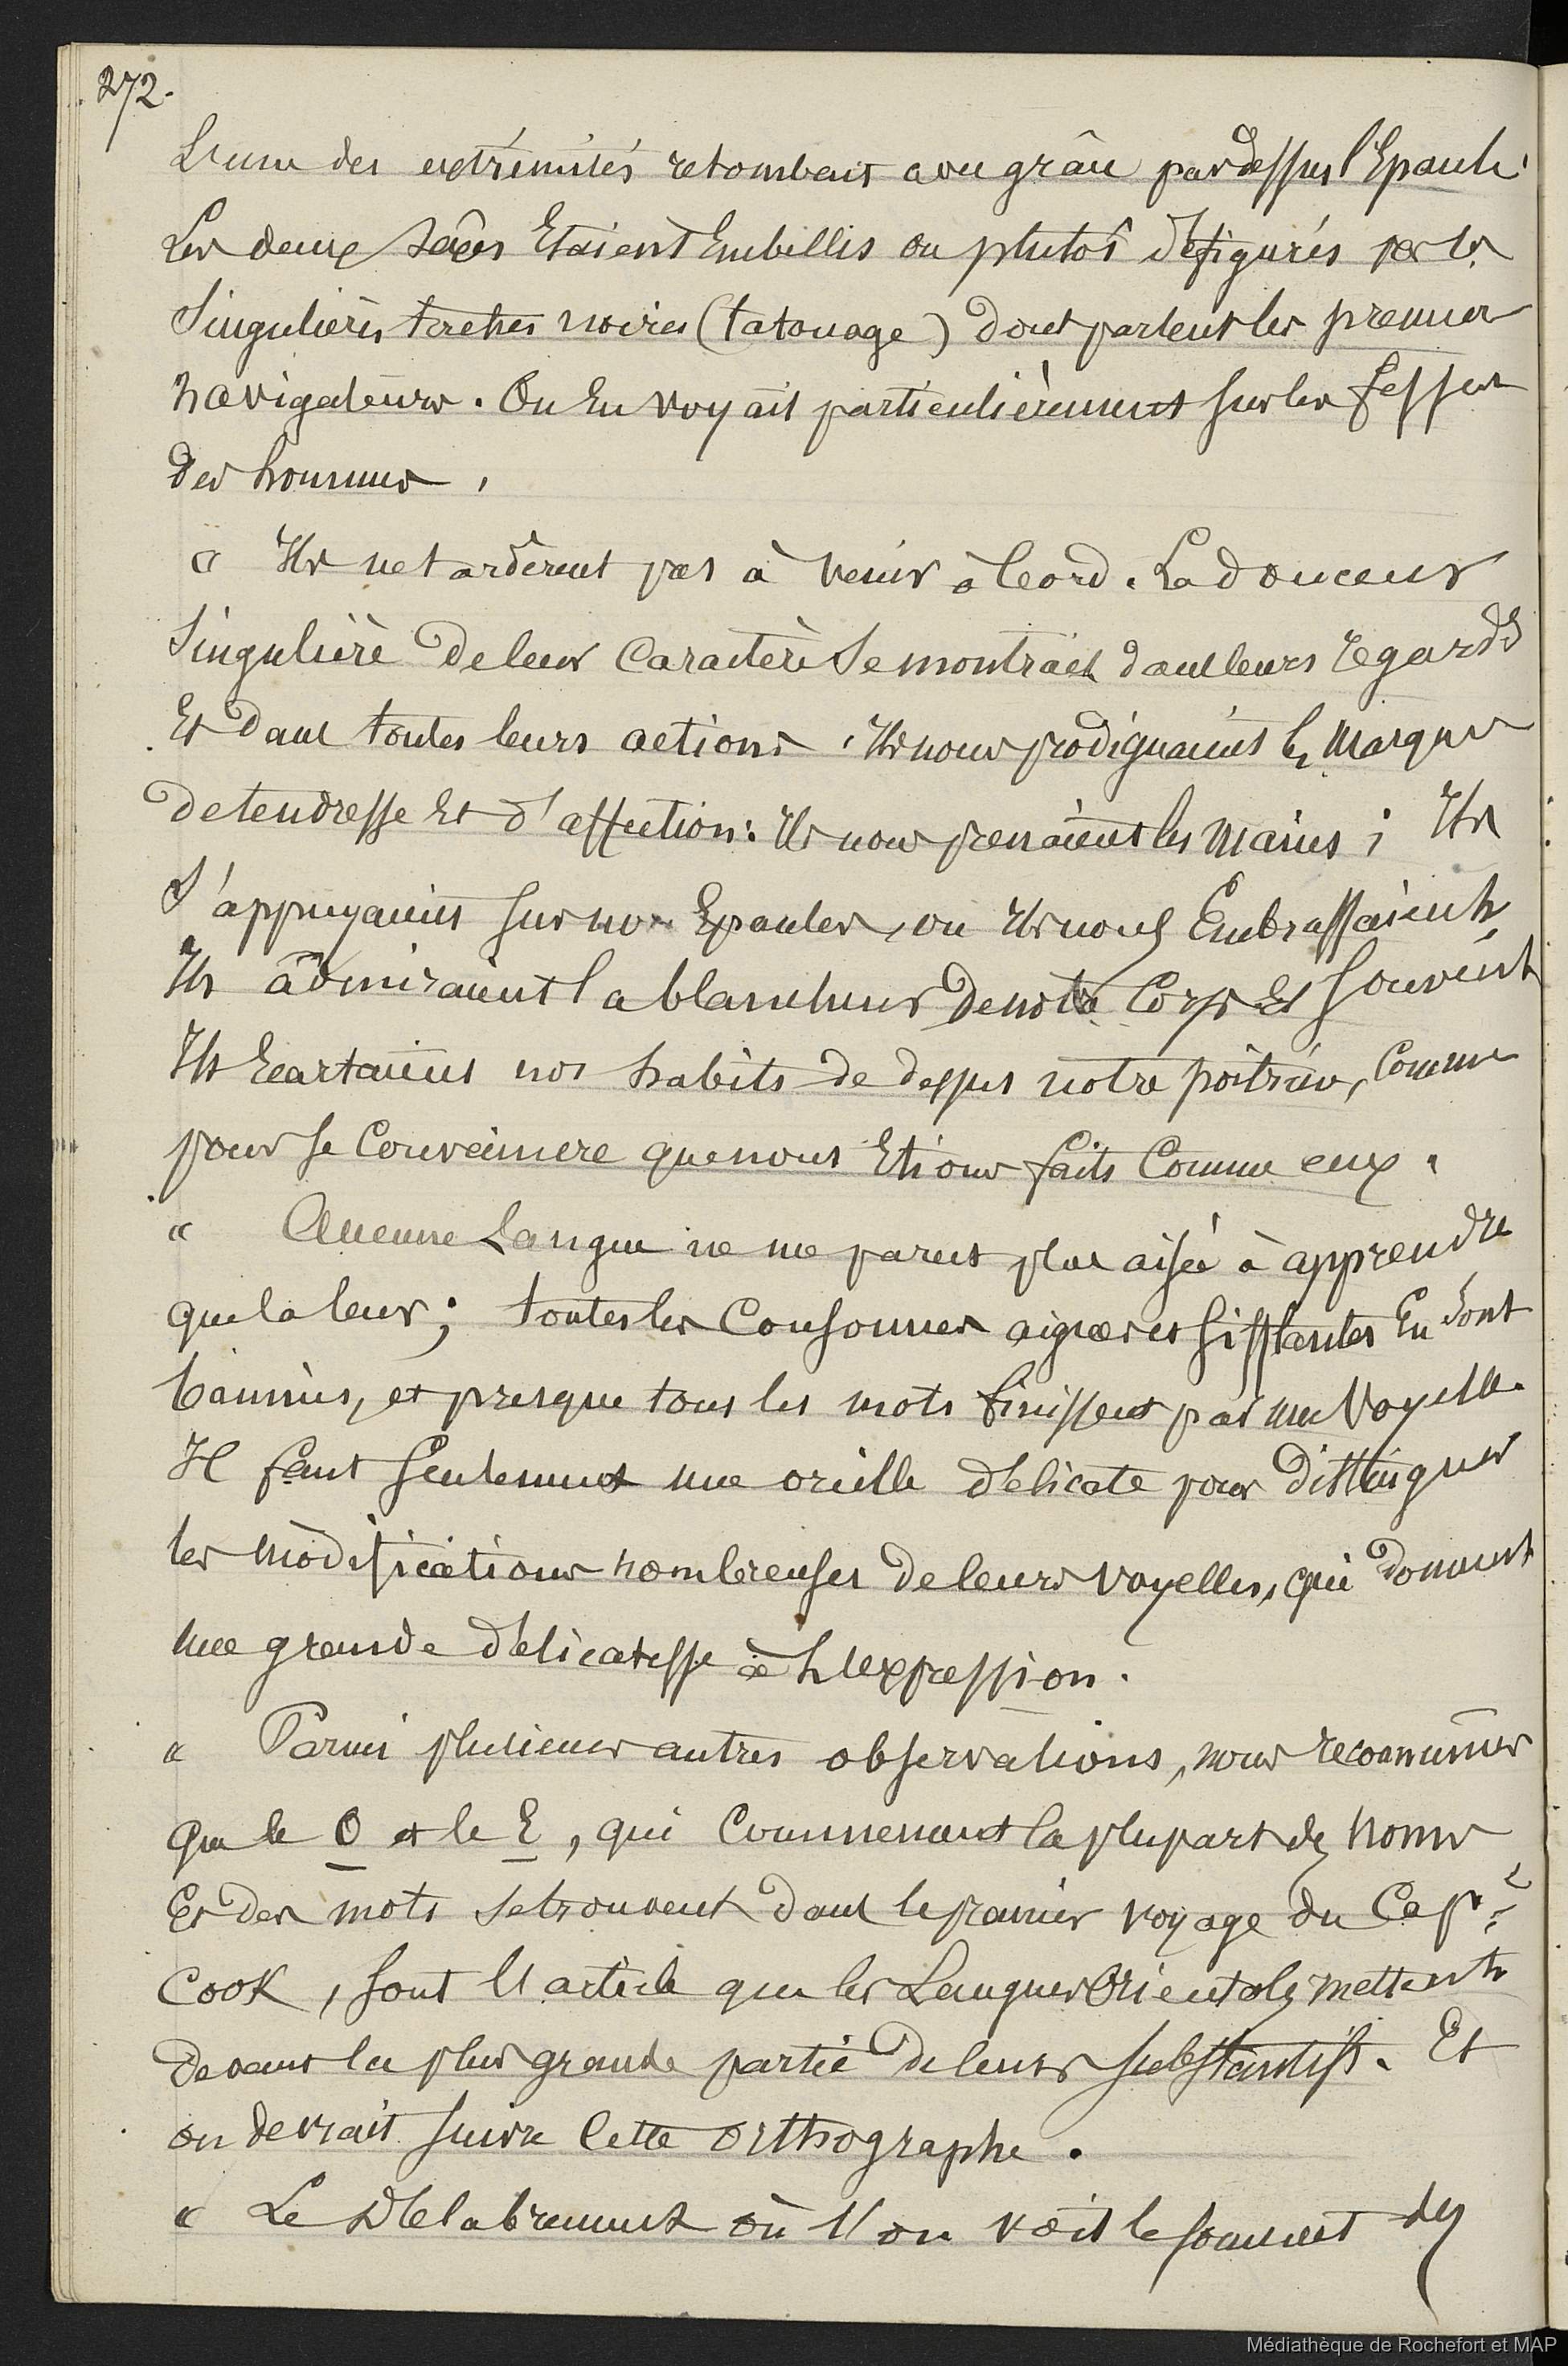 272.
L'une des extrémités retombait avec grâce pardessus l'Epaule.
Les deux sexes Etaient Embellis ou plutôt défigurés par les
Singulières taches noires (tatouage) dont parlent les premiers
navigateurs. On En voyait particulièrement sur les fesses
des hommes.
« Ils ne tardèrent pas à venir à bord. La douceur
Singulière de leur Caractère se montrait dans leurs regards
Et dans toutes leurs actions. Ils nous prodiguaient les marques
de tendresse Et d'affection : Ils nous prenaient les mains ; Ils
S'appuyaient sur nos Epaules, ou Ils nous Embrassaient,
Ils admiraient la blancheur de notre Corps Et souvent
Ils Ecartaient nos habits de dessus notre poitrine, Comme
pour se Convaincre que nous Etions faits Comme eux.
« Aucune Langue ne me parut plus aisée à apprendre
que la leur ; toutes les Consonnes aigres et sifflantes En sont
bannies, et presque tous les mots finissent par une Voyelle.
Il faut seulement une oreille délicate pour distinguer
les modifications nombreuses de leurs voyelles, qui donnent
une grande délicatesse à l'expression.
« Parmi plusieurs autres observations, nous reconnumes
que le O et le E, qui Commencent la plupart des noms
Et des mots se trouvent dans le premier voyage du Cap.e
Cook, sont l'article que les Langues Orientales mettent
devant la plus grande partie de leurs substantifs. Et
on devrait suivre Cette Orthographe.
« Le Délabrement où l'on voit le sommet des
Médiathèque de Rochefort et MAP